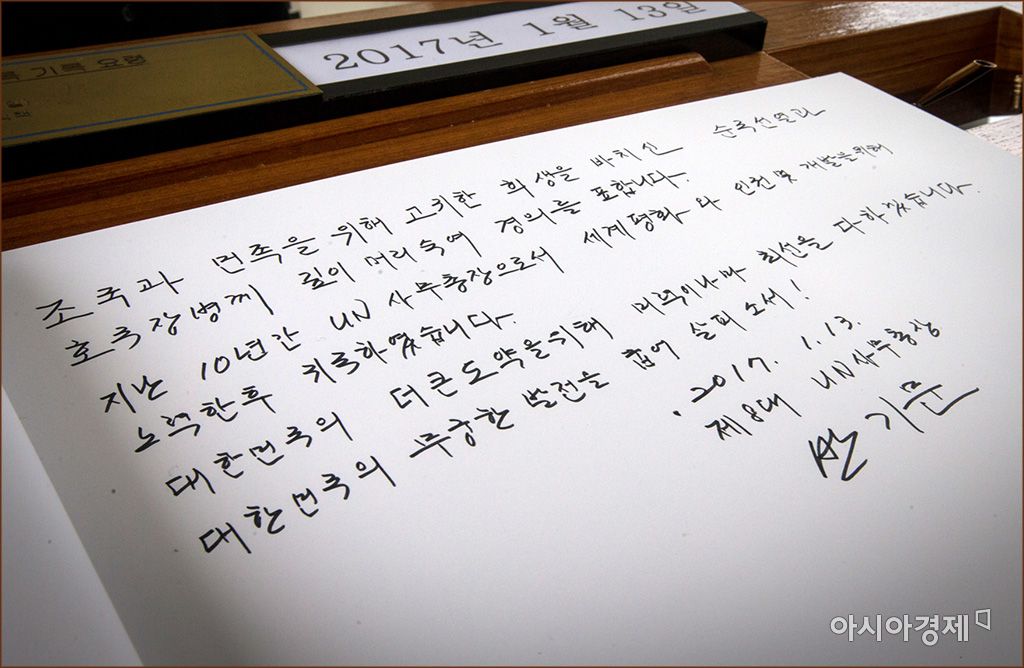 록 기록 요령
2017년 1월 13일
조국과 민족을 위해 고귀한 희생을 바치신 순국선열과
호국장병께 깊이 머리숙여 경의를 표합니다.
지난 10년간 UN 사무총장으로서 세계평화와 인권 및 개발을 위해
노력한후 귀국하였습니다.
대한민국의 더 큰 도약을 위해 미력이나마 최선을 다하겠습니다.
대한민국의 무궁한 발전을 굽어 살피소서!
2017. 1.13.
제8대 UN사무총장
반기문
아시아경제